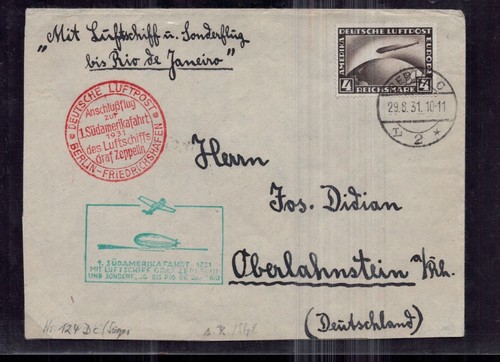 "Mit Luftschiff u. Sonderflug
bis Rio de Janeiro"
DEUTSCHE LUFTPOST
AMERIKA
EUROPA
4 REICHSMARK 4
BERLIN C
29.8.31. 10-11
2 *
* DEUTSCHE LUFTPOST *
Anschlußflug
zur
1. Südamerikafahrt
1931
des Luftschiffs
Graf Zeppelin
BERLIN-FRIEDRICHSHAFEN
Herrn
Jos. Didian
Oberlahnstein a/Rh.
(Deutschland)
1. SÜDAMERIKAFAHRT 1931
MIT LUFTSCHIFF GRAF ZEPPELIN
UND SONDERFLUG BIS RIO DE JANEIRO
124 D